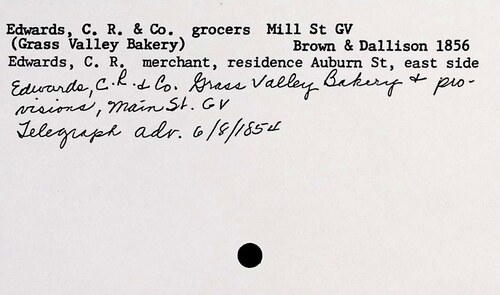 Edwards, C. R. & Co. grocers Mill St GV
(Grass Valley Bakery) Brown & Dallison 1856
Edwards, C. R. merchant, residence Auburn St, east side
Edwards, C. R. & Co. Grass Valley Bakery & pro-
visions, Main St. GV
Telegraph adv. 6/8/1854